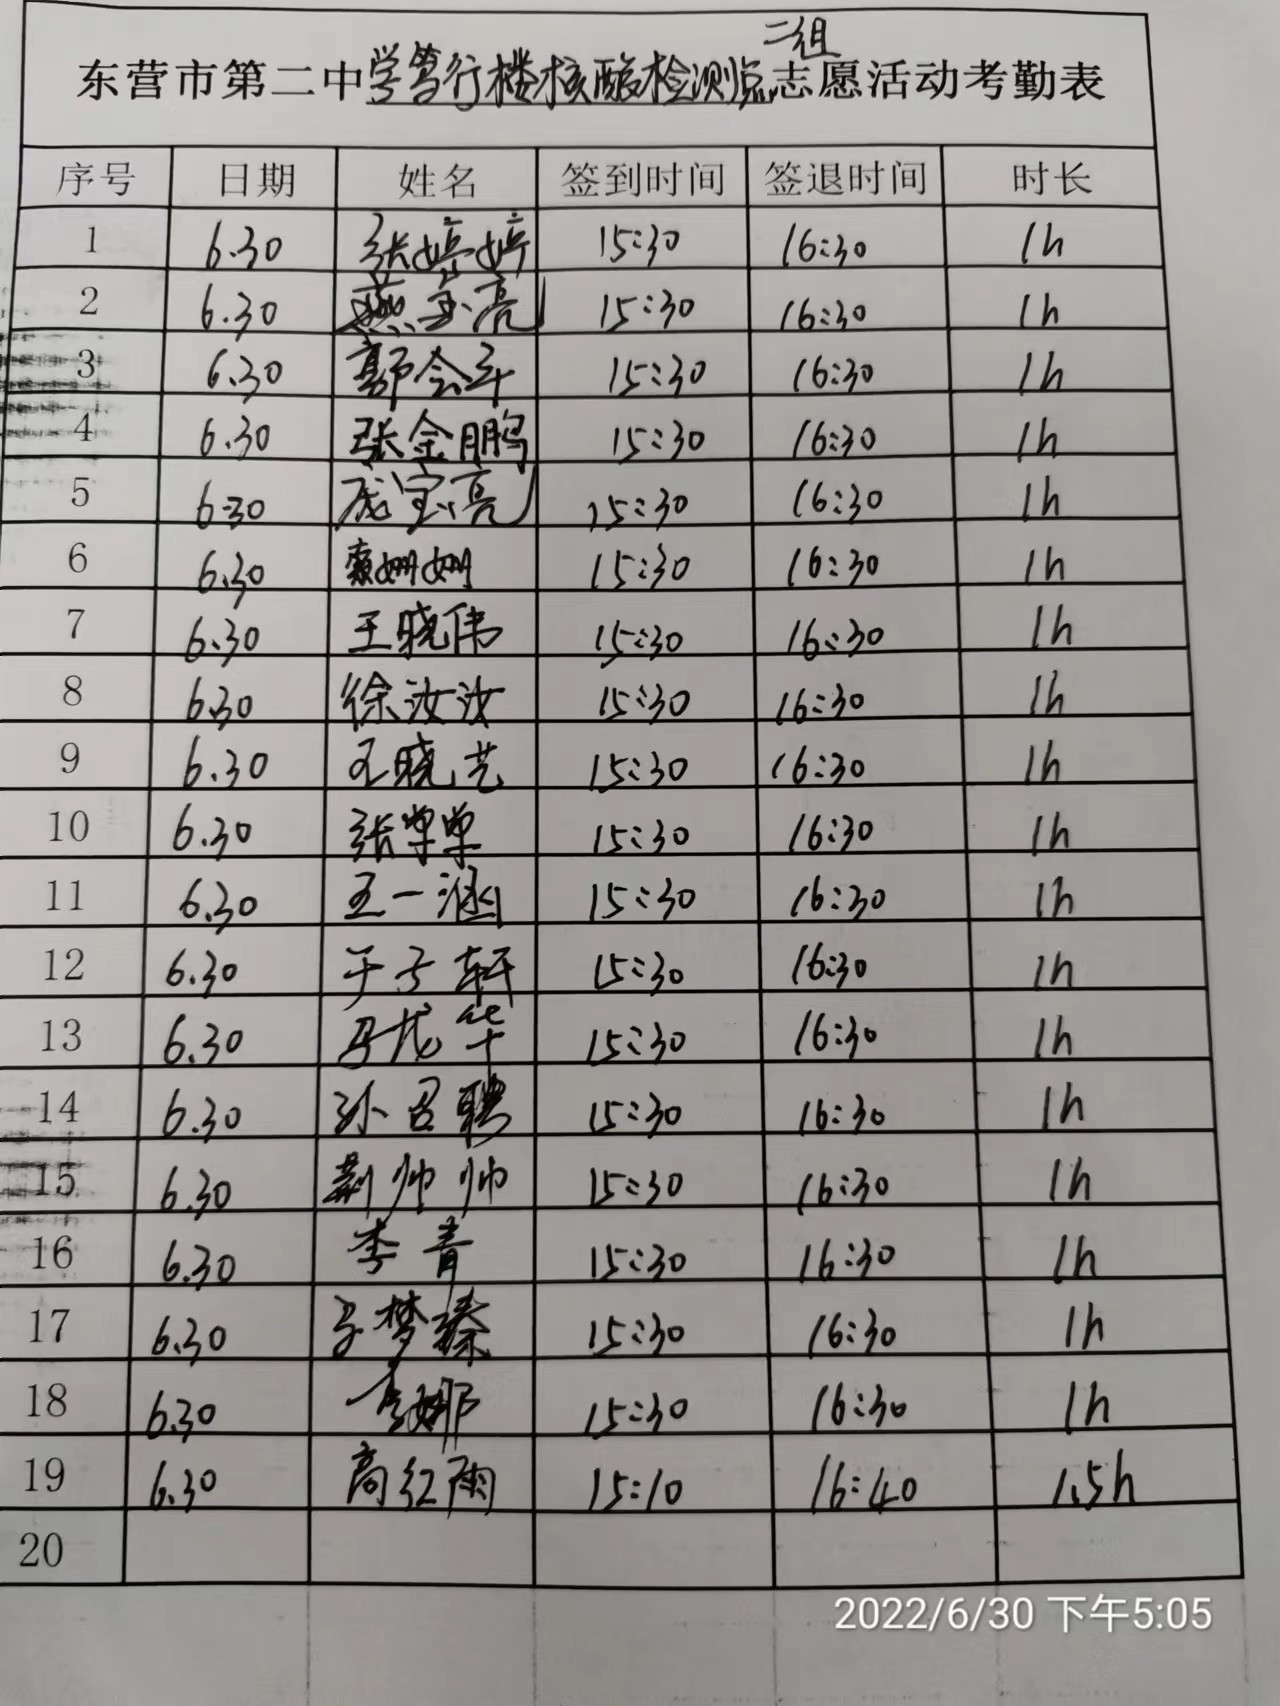 二组
东营市第二中学笃行楼核酸检测点志愿活动考勤表
序号 日期 姓名 签到时间 签退时间 时长
1 6.30 张婷婷 15:30 16:30 1h
2 6.30 燕宝亮 15:30 16:30 1h
3 6.30 郭会军 15:30 16:30 1h
4 6.30 张金鹏 15:30 16:30 1h
5 6.30 成宝亮 15:30 16:30 1h
6 6.30 姗姗 15:30 16:30 1h
7 6.30 王晓伟 15:30 16:30 1h
8 6.30 徐汝汝 15:30 16:30 1h
9 6.30 王晓艺 15:30 16:30 1h
10 6.30 张单单 15:30 16:30 1h
11 6.30 王一涵 15:30 16:30 1h
12 6.30 于子轩 15:30 16:30 1h
13 6.30 马龙华 15:30 16:30 1h
14 6.30 孙召聘 15:30 16:30 1h
15 6.30 荆帅帅 15:30 16:30 1h
16 6.30 李青 15:30 16:30 1h
17 6.30 梦臻 15:30 16:30 1h
18 6.30 李娜 15:30 16:30 1h
19 6.30 高红雨 15:10 16:40 1.5h
20
2022/6/30 下午5:05